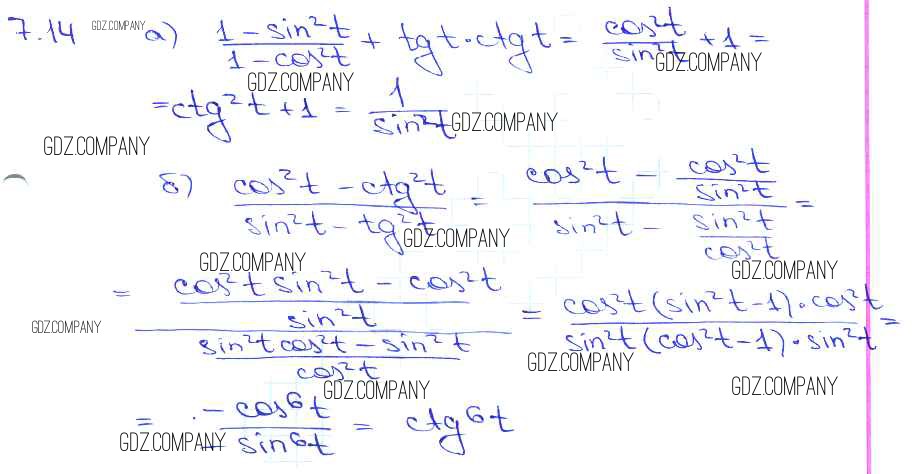 7.14 GDZ.COMPANY а) (1 - sin²t)/(1 - cos²t) + tgt·ctgt = cos²t/sin²t + 1 =
GDZ.COMPANY GDZ.COMPANY
= ctg²t + 1 = 1/sin²t GDZ.COMPANY
GDZ.COMPANY
б) (cos²t - ctg²t)/(sin²t - tg²t) = (cos²t - cos²t/sin²t)/(sin²t - sin²t/cos²t) =
GDZ.COMPANY
GDZ.COMPANY GDZ.COMPANY
= ((cos²t sin²t - cos²t)/sin²t)/((sin²t cos²t - sin²t)/cos²t) = (cos²t (sin²t - 1)·cos²t)/(sin²t (cos²t - 1)·sin²t) =
GDZ.COMPANY
GDZ.COMPANY
GDZ.COMPANY GDZ.COMPANY
= (-cos⁶t)/(-sin⁶t) = ctg⁶t
GDZ.COMPANY